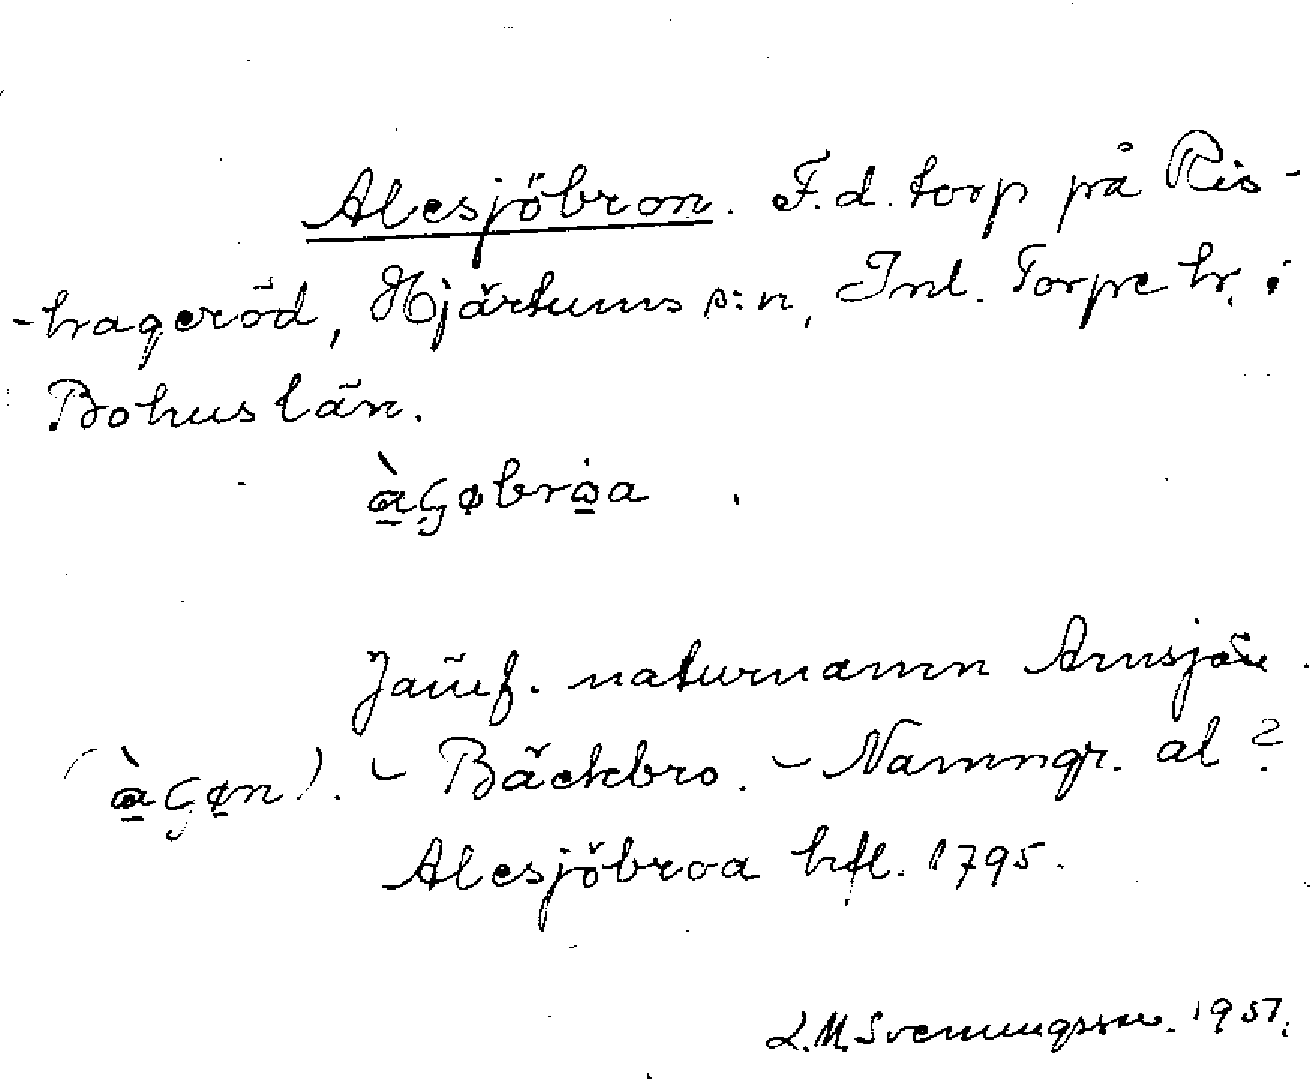 Alesjöbron. F.d. torp på Ris-
-hageröd, Hjärtums s:n, Inl. Torpe hr. i
Bohuslän.
àGøbròa
Jämf. naturnamn Arnsjön
(àGøn). - Bäckbro. - Namngr. al?
Alesjöbroa hfl. 1795.
L.M. Svenungsson. 1957.